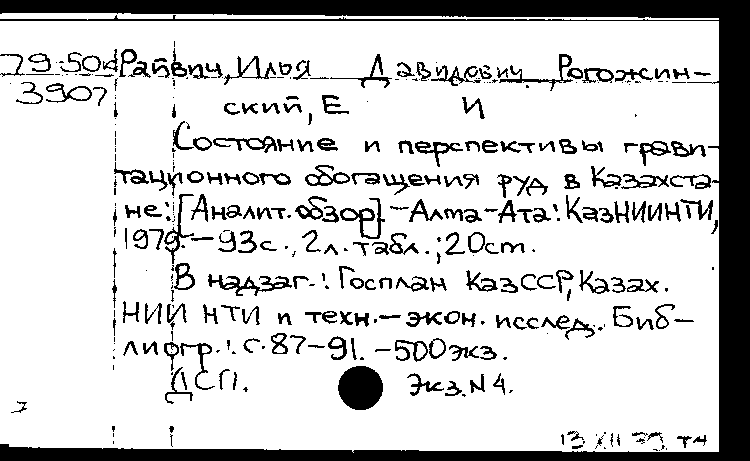 79-50к Райвич, Илья Давидович, Рогожин-
3907 ский, Е И
Состояние и перспективы грави-
тационного обогащения руд в Казахста-
не: [Аналит. обзор]. - Алма-Ата: КазНИИНТИ,
1979. - 93с., 2л. табл.; 20см.
В надзаг.: Госплан КазССР, Казах.
НИИ НТИ и техн.-экон. исслед. Биб-
лиогр.: с. 87-91. - 500экз.
ДСП. Экз. N4.
13 XII 79